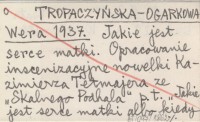 TROPACZYŃSKA-OGARKOWA
Wera 1937. Jakie jest
serce matki. Opracowanie
inscenizacyjne nowelki Ka-
zimierza Tetmajera ze
"Skalnego Podhala" p.t. "Jakie
jest serke matki albo kiedy